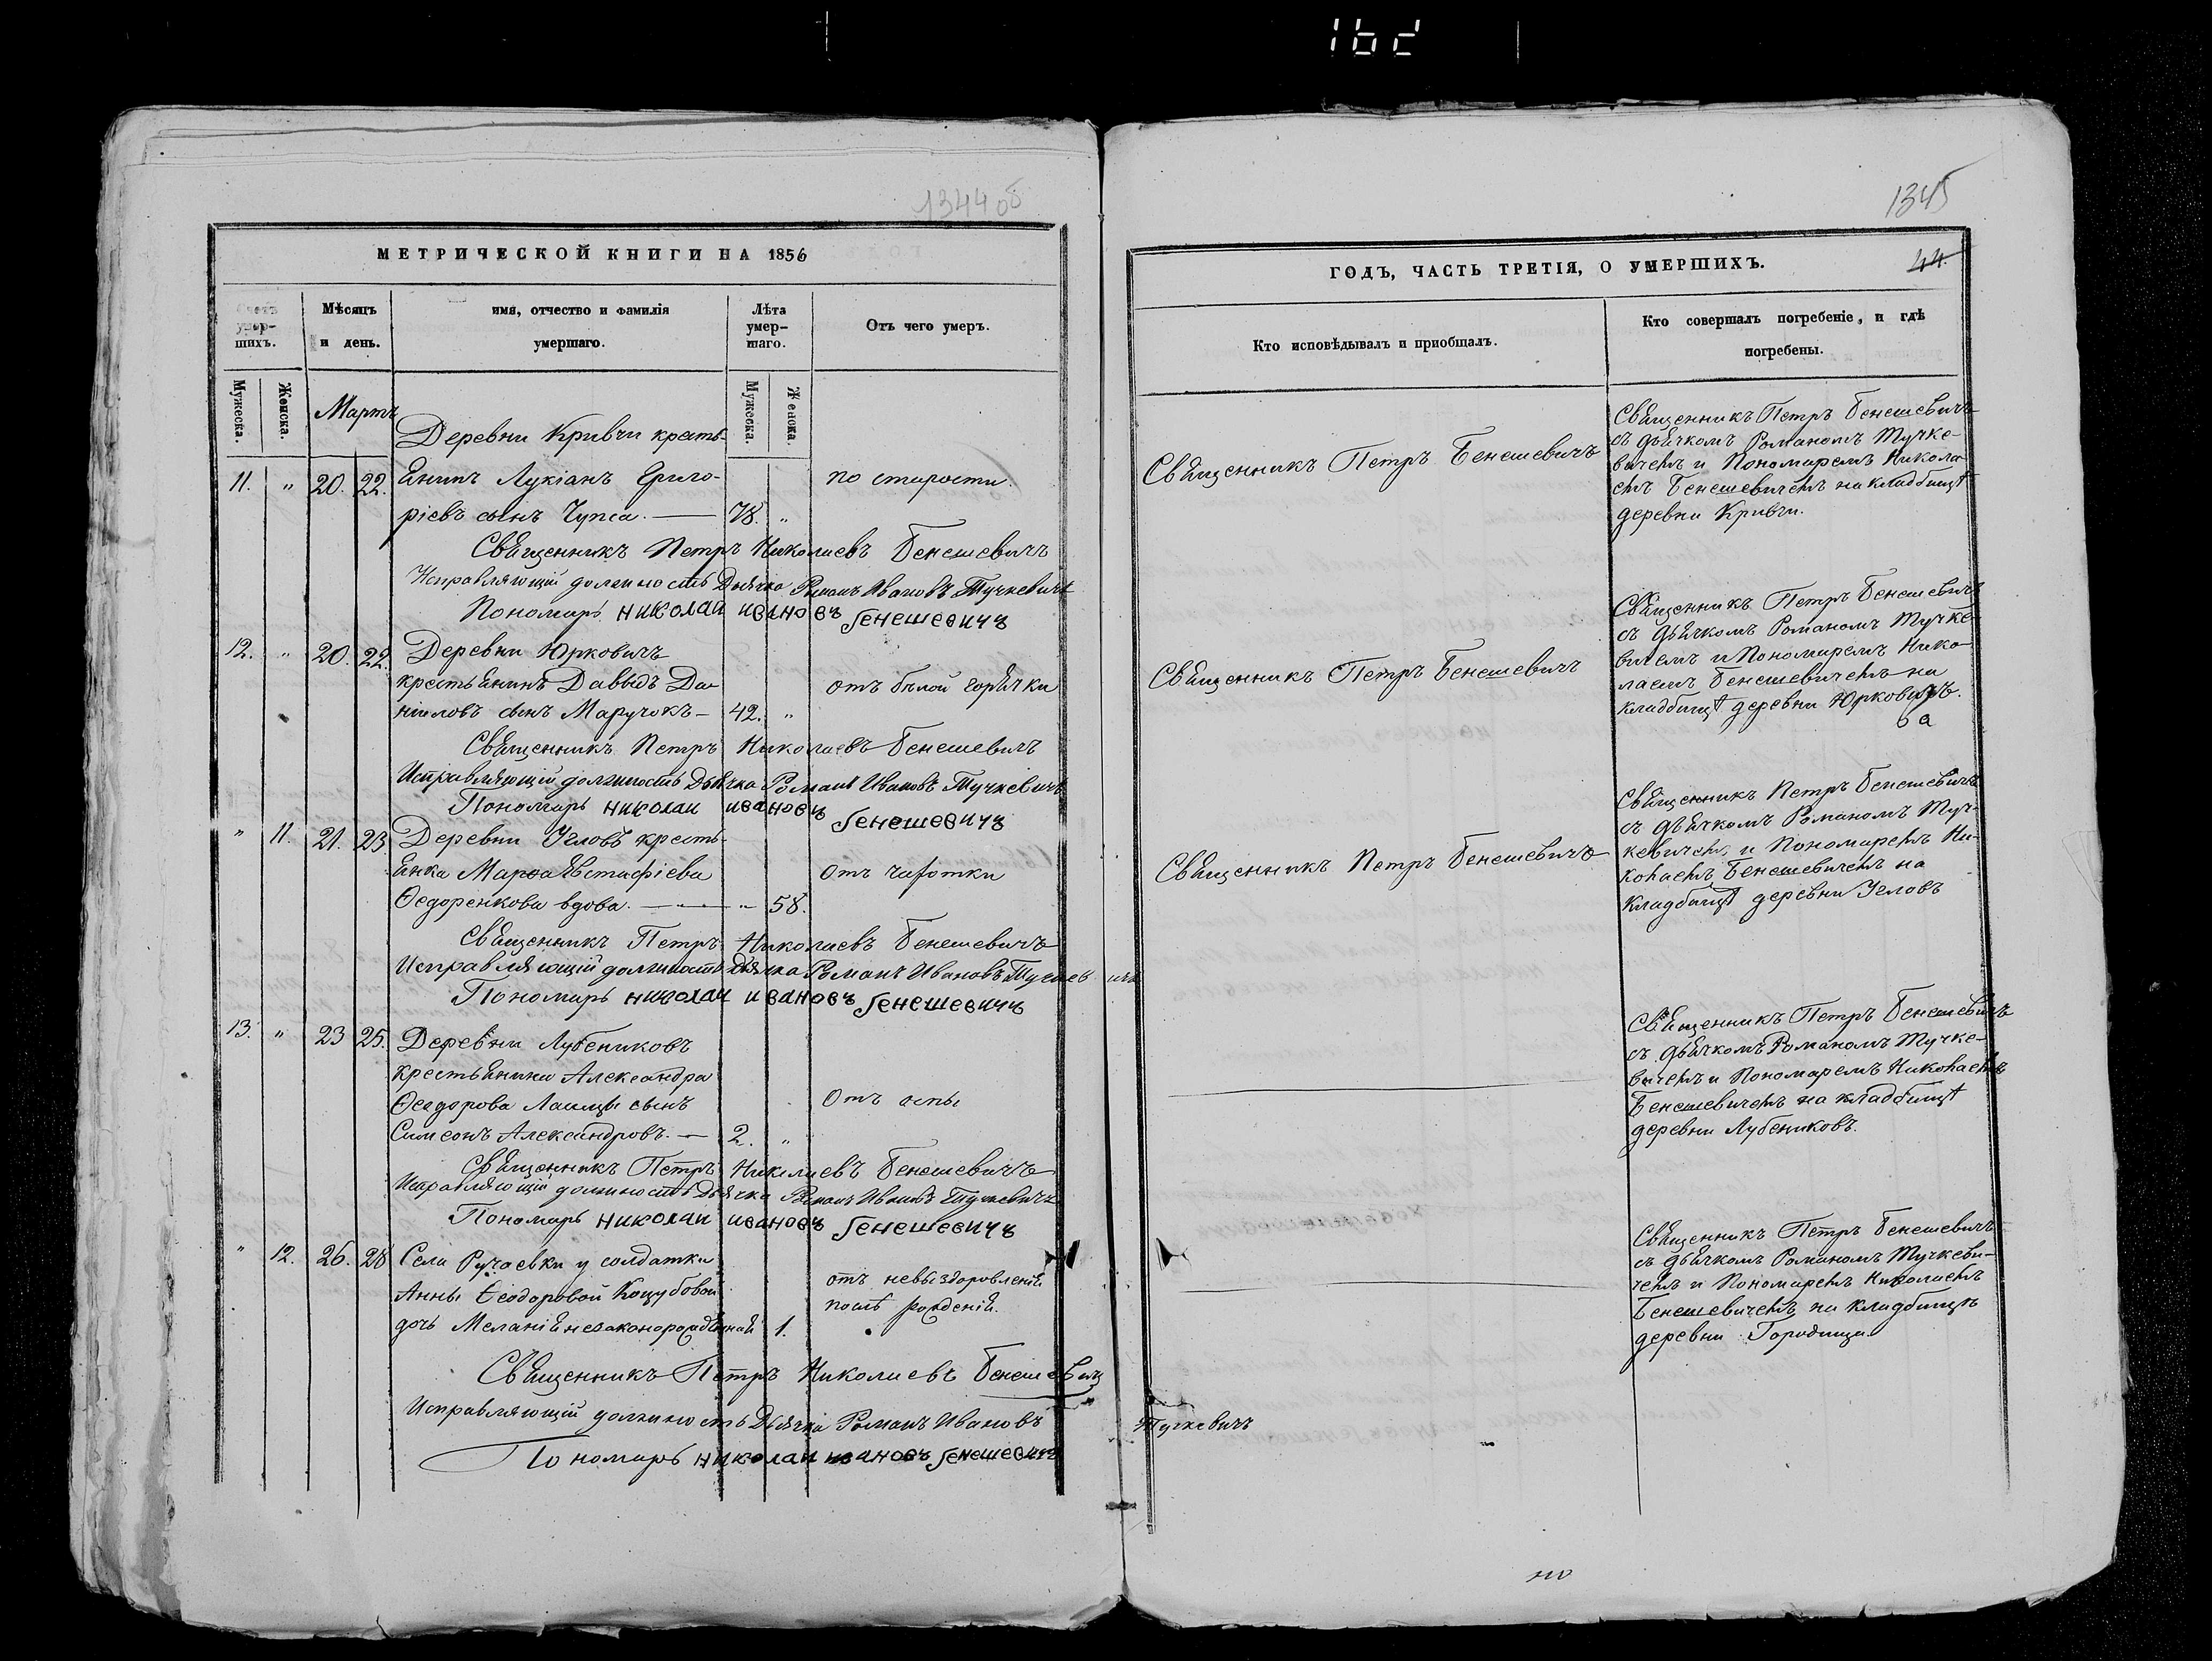 162
1344 об
МЕТРИЧЕСКОЙ КНИГИ НА 1856
Счетъ умер-шихъ.
Мѣсяцъ и день.
имя, отчество и фамилія умершаго.
Лѣта умер-шаго.
Отъ чего умеръ.
Мужеска.
Женска.
Мартъ
Мужеска.
Женска.
Деревни Кривчи кресть-
11. " 20. 22. янинъ Лукіанъ Григо- по старости.
ріевъ сынъ Чупса. — 78. "
Священникъ Петръ Николаевъ Бенешевичъ
Исправляющій должность Дьячка Романъ Ивановъ Тучкевичъ
Пономарь николай ивановъ Бенешевичъ
12. " 20. 22. Деревни Юрковичъ
крестьянинъ Давыдъ Да- отъ бѣлой горячки
ніиловъ сынъ Маручокъ — 42. "
Священникъ Петръ Николаевъ Бенешевичъ
Исправляющій должность Дьячка Романъ Ивановъ Тучкевичъ
Пономарь николаи ивановъ Бенешевичъ
" 11. 21. 23. Деревни Угловъ кресть-
янка Марѳа Евстафіева отъ чахотки
Ѳедоренкова вдова. — " 58.
Священникъ Петръ Николаевъ Бенешевичъ
Исправляющій должность Дьячка Романъ Ивановъ Тучкевичъ
Пономарь николаи ивановъ Бенешевичъ
13. " 23 25. Деревни Лубениковъ
крестьянина Александра
Ѳеодорова Лашцы сынъ Отъ оспы
Симеонъ Александровъ. — 2. "
Священникъ Петръ Николаевъ Бенешевичъ
Исправляющій должность Дьячка Романъ Ивановъ Тучкевичъ
Пономарь николаи ивановъ Бенешевичъ
" 12. 26. 28 Села Ручаевки у солдатки
Анны Ѳеодоровой Коцубовой отъ невыздоровленія
дочь Меланія незаконорожденная 1. послѣ рожденія.
Священникъ Петръ Николаевъ Бенешевичъ
Исправляющій должность Дьячка Романъ Ивановъ Тучкевичъ
Пономарь николаи ивановъ Бенешевичъ
1345
ГОДЪ, ЧАСТЬ ТРЕТІЯ, О УМЕРШИХЪ.
44.
Кто исповѣдывалъ и приобщалъ.
Кто совершалъ погребеніе, и гдѣ погребены.
Священникъ Петръ Бенешевичъ
Священникъ Петръ Бенешевичъ
съ дьячкомъ Романомъ Тучке-
вичемъ и Пономаремъ Никола
емъ Бенешевичемъ на кладбищѣ
деревни Кривчи.
Священникъ Петръ Бенешевичъ
Священникъ Петръ Бенешевичъ
съ дьячкомъ Романомъ Тучке-
вичемъ и Пономаремъ Нико-
лаемъ Бенешевичемъ на
кладбищѣ деревни Юрковичъ.
Священникъ Петръ Бенешевичъ
Священникъ Петръ Бенешевичъ
съ дьячкомъ Романомъ Туч-
кевичемъ и Пономаремъ Ни-
колаемъ Бенешевичемъ на
кладбищѣ деревни Угловъ
Священникъ Петръ Бенешевичъ
съ дьячкомъ Романомъ Тучке-
вичемъ и Пономаремъ Николаемъ
Бенешевичемъ на кладбищѣ
деревни Лубениковъ.
Священникъ Петръ Бенешевичъ
съ дьячкомъ Романомъ Тучкеви-
чемъ и Пономаремъ Николаемъ
Бенешевичемъ на кладбищѣ
деревни Городища.